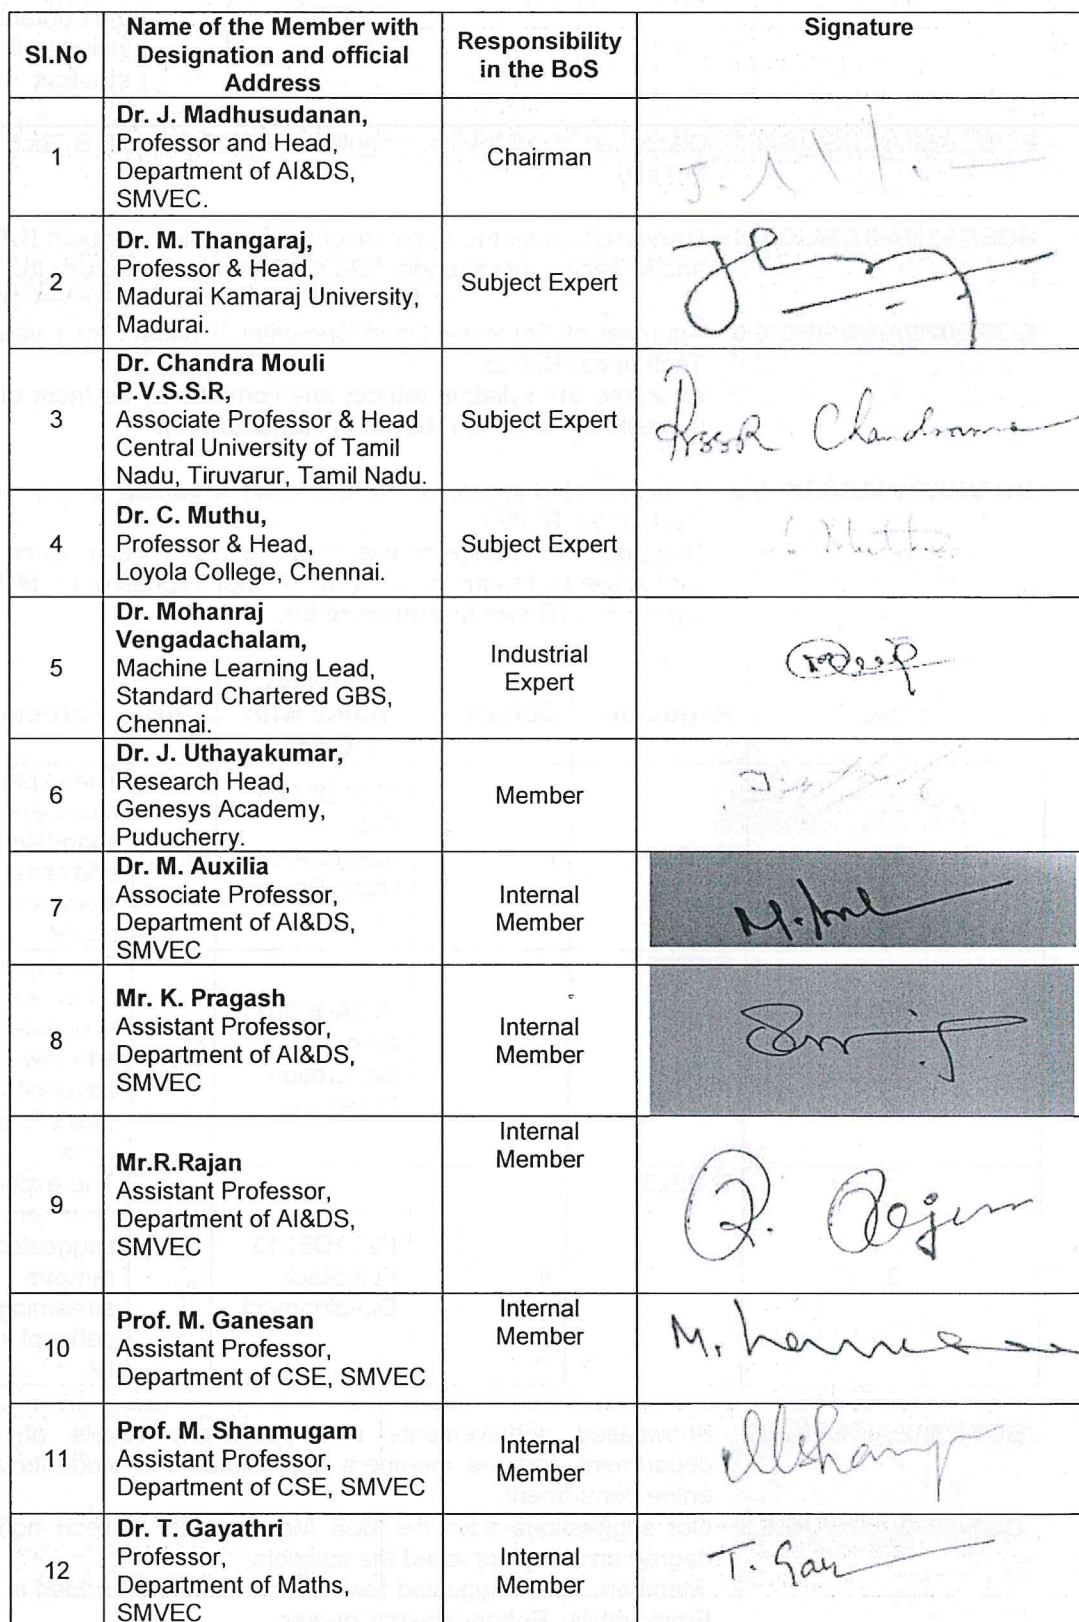 Sl.No
Name of the Member with
Designation and official
Address
Responsibility
in the BoS
Signature
1
Dr. J. Madhusudanan,
Professor and Head,
Department of AI&DS,
SMVEC.
Chairman
2
Dr. M. Thangaraj,
Professor & Head,
Madurai Kamaraj University,
Madurai.
Subject Expert
3
Dr. Chandra Mouli
P.V.S.S.R,
Associate Professor & Head
Central University of Tamil
Nadu, Tiruvarur, Tamil Nadu.
Subject Expert
4
Dr. C. Muthu,
Professor & Head,
Loyola College, Chennai.
Subject Expert
5
Dr. Mohanraj
Vengadachalam,
Machine Learning Lead,
Standard Chartered GBS,
Chennai.
Industrial
Expert
6
Dr. J. Uthayakumar,
Research Head,
Genesys Academy,
Puducherry.
Member
7
Dr. M. Auxilia
Associate Professor,
Department of AI&DS,
SMVEC
Internal
Member
8
Mr. K. Pragash
Assistant Professor,
Department of AI&DS,
SMVEC
Internal
Member
9
Mr.R.Rajan
Assistant Professor,
Department of AI&DS,
SMVEC
Internal
Member
10
Prof. M. Ganesan
Assistant Professor,
Department of CSE, SMVEC
Internal
Member
11
Prof. M. Shanmugam
Assistant Professor,
Department of CSE, SMVEC
Internal
Member
12
Dr. T. Gayathri
Professor,
Department of Maths,
SMVEC
Internal
Member